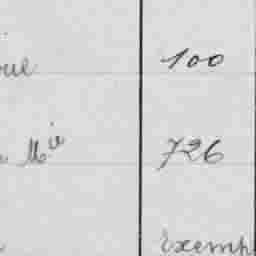 100
Mie 726
Exemp